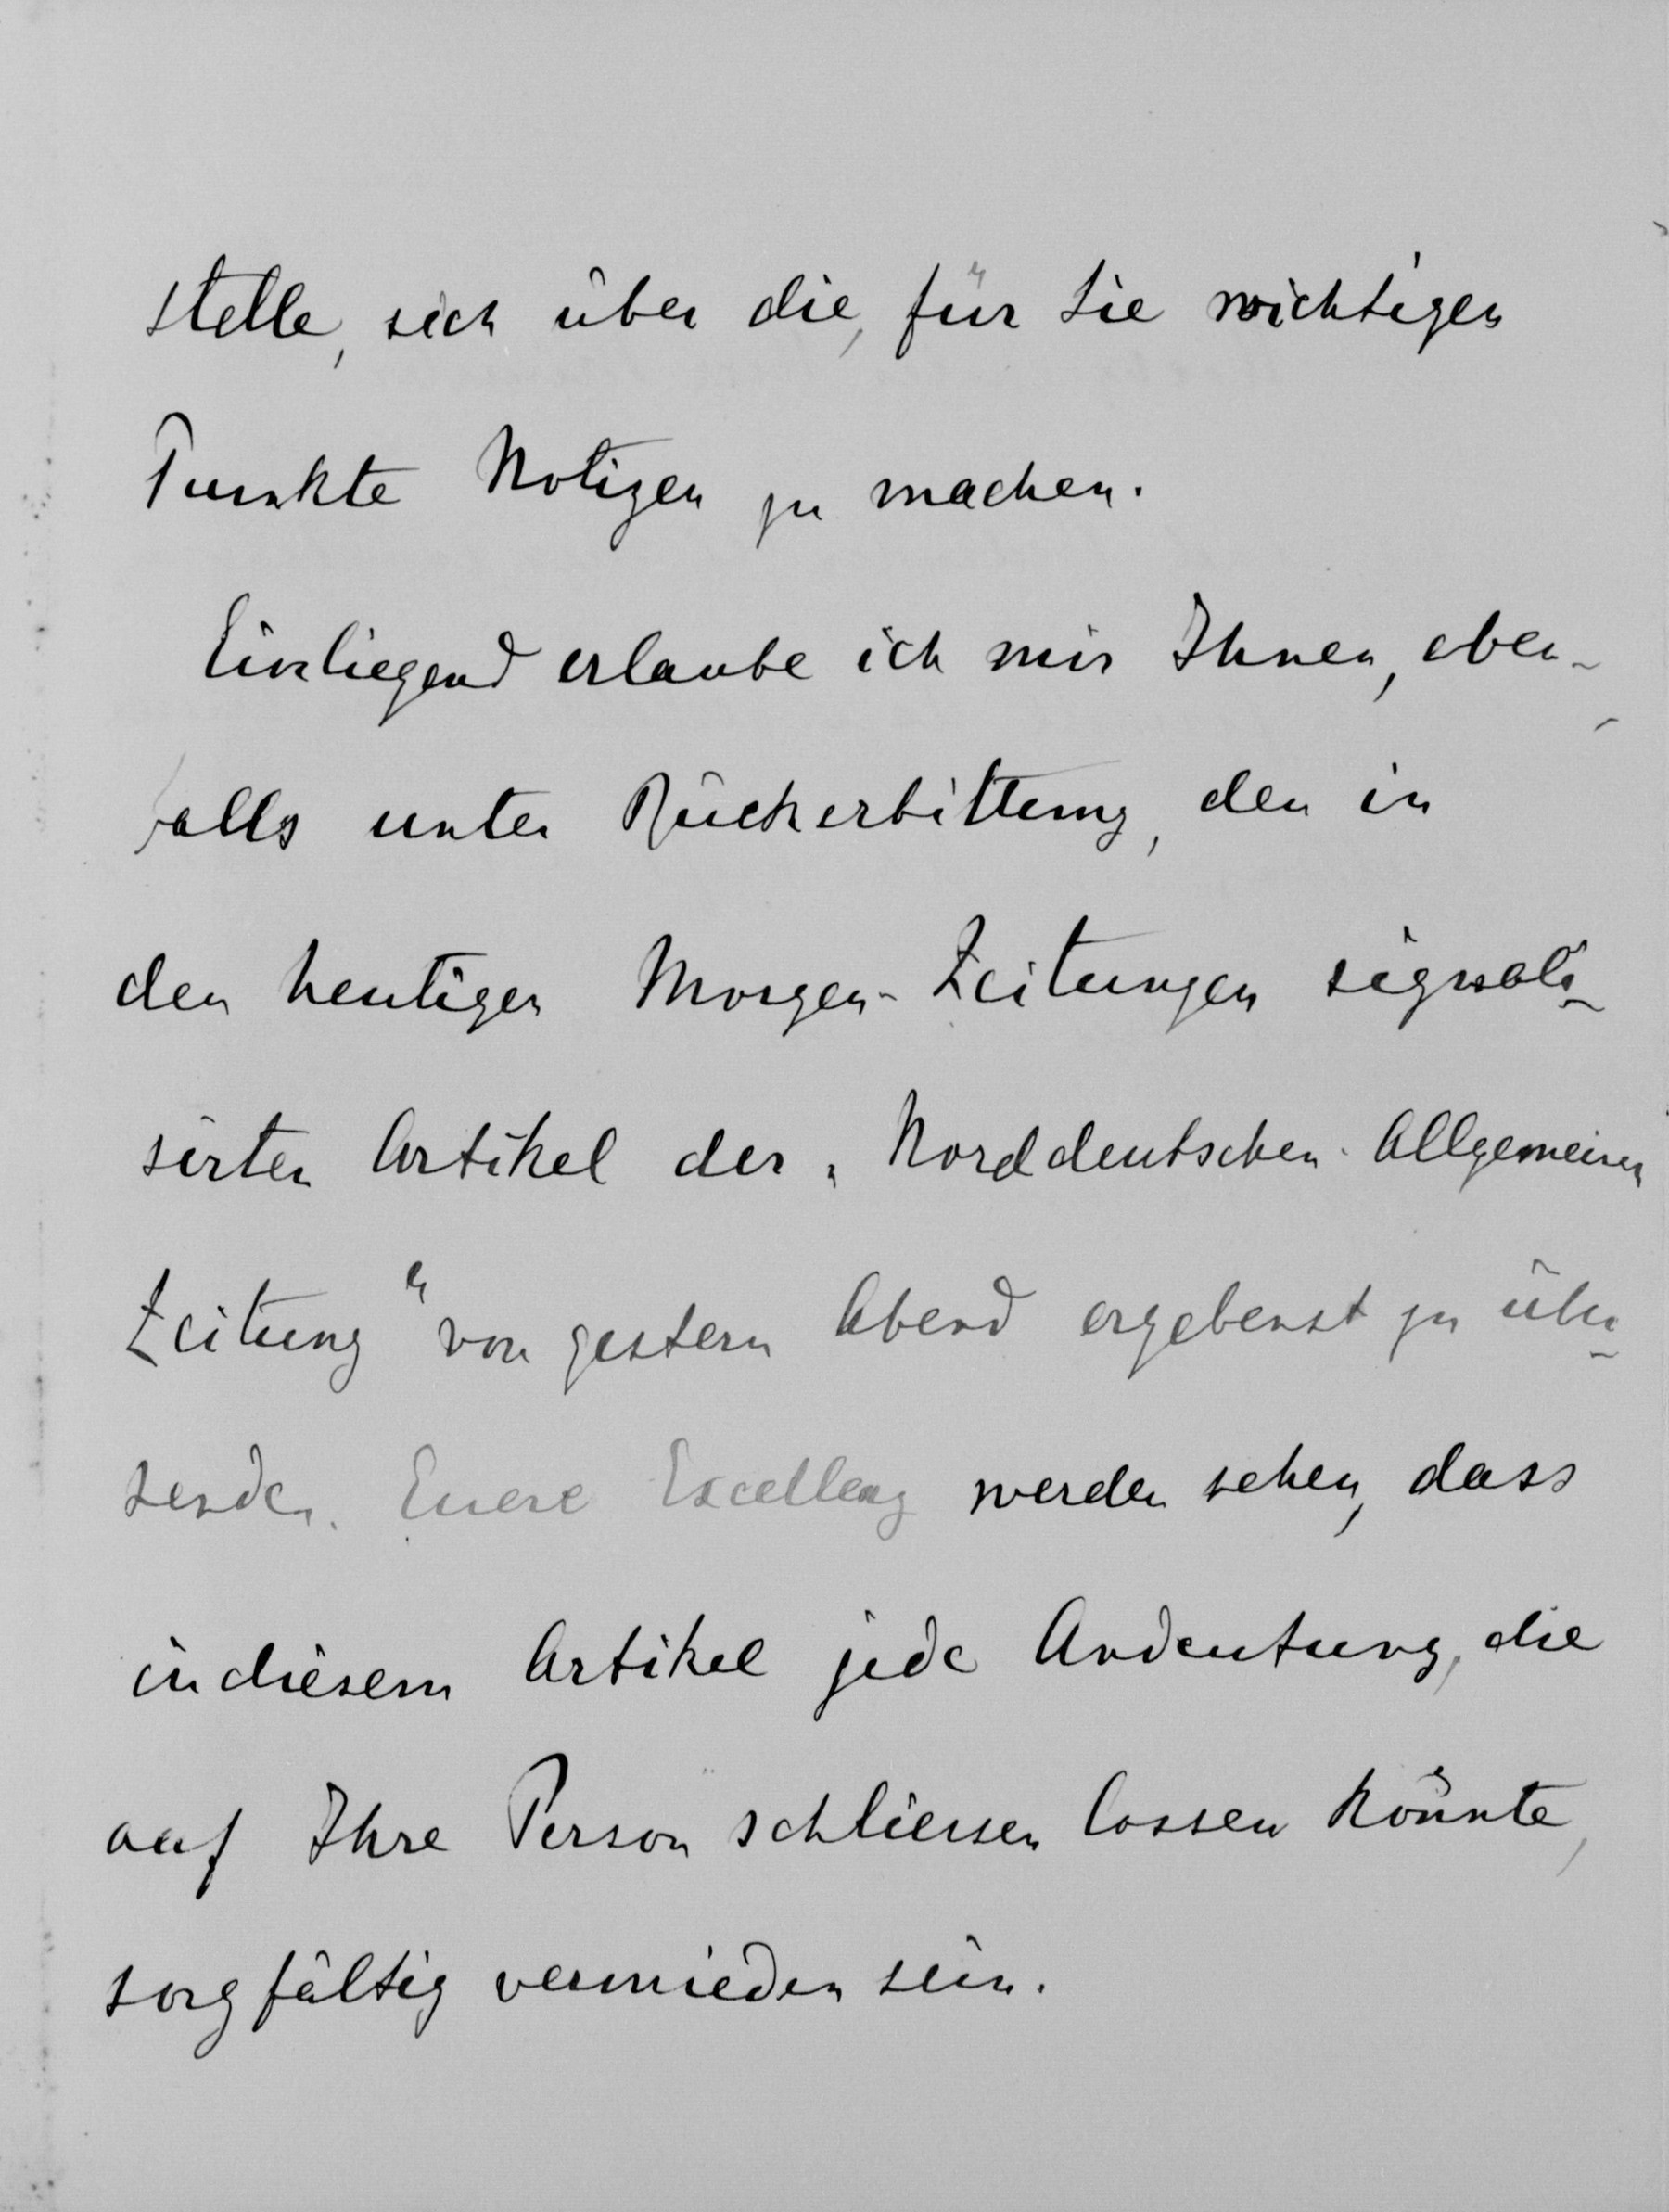 stelle, sich über die, für Sie wichtigen
Punkte Notizen zu machen.
Einliegend erlaube ich mir Ihnen, eben-
falls unter Rückerbittung, den in
den heutigen Morgen-Zeitungen signali-
sirten Artikel der „Norddeutschen Allgemeinen
Zeitung" von gestern Abend ergebenst zu über-
senden. Euere Excellenz werden sehen, dass
in diesem Artikel jede Andeutung, die
auf Ihre Person schliessen lassen könnte,
sorgfältig vermieden sein.